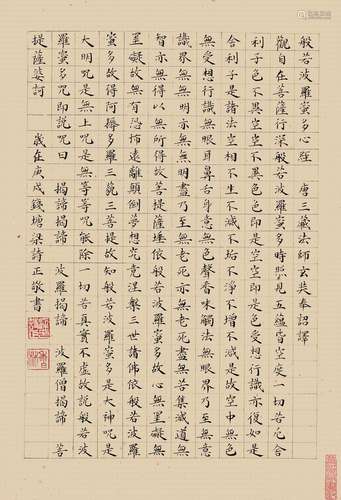 般若波羅蜜多心經 唐三藏法師玄奘奉詔譯
觀自在菩薩行深般若波羅蜜多時照見五蘊皆空度一切苦厄舍
利子色不異空空不異色色即是空空即是色受想行識亦復如是
舍利子是諸法空相不生不滅不垢不淨不增不減是故空中無色
無受想行識無眼耳鼻舌身意無色聲香味觸法無眼界乃至無意
識界無無明亦無無明盡乃至無老死亦無老死盡無苦集滅道無
智亦無得以無所得故菩提薩埵依般若波羅蜜多故心無罣礙無
罣礙故無有恐怖遠離顛倒夢想究竟涅槃三世諸佛依般若波羅
蜜多故得阿耨多羅三藐三菩提故知般若波羅蜜多是大神咒是
大明咒是無上咒是無等等咒能除一切苦真實不虛故說般若波
羅蜜多咒即說咒曰 揭諦揭諦 波羅揭諦 波羅僧揭諦 菩
提薩婆訶
歲在庚戌錢塘梁詩正敬書